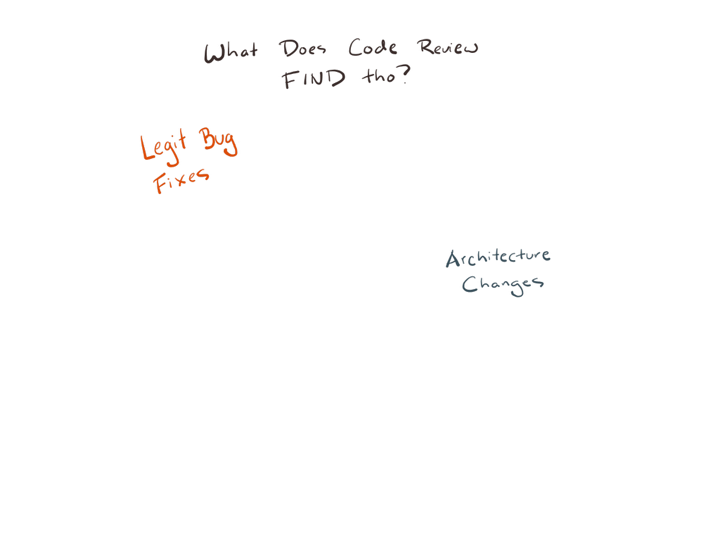 What Does Code Review
FIND tho?
Legit Bug
Fixes
Architecture
Changes